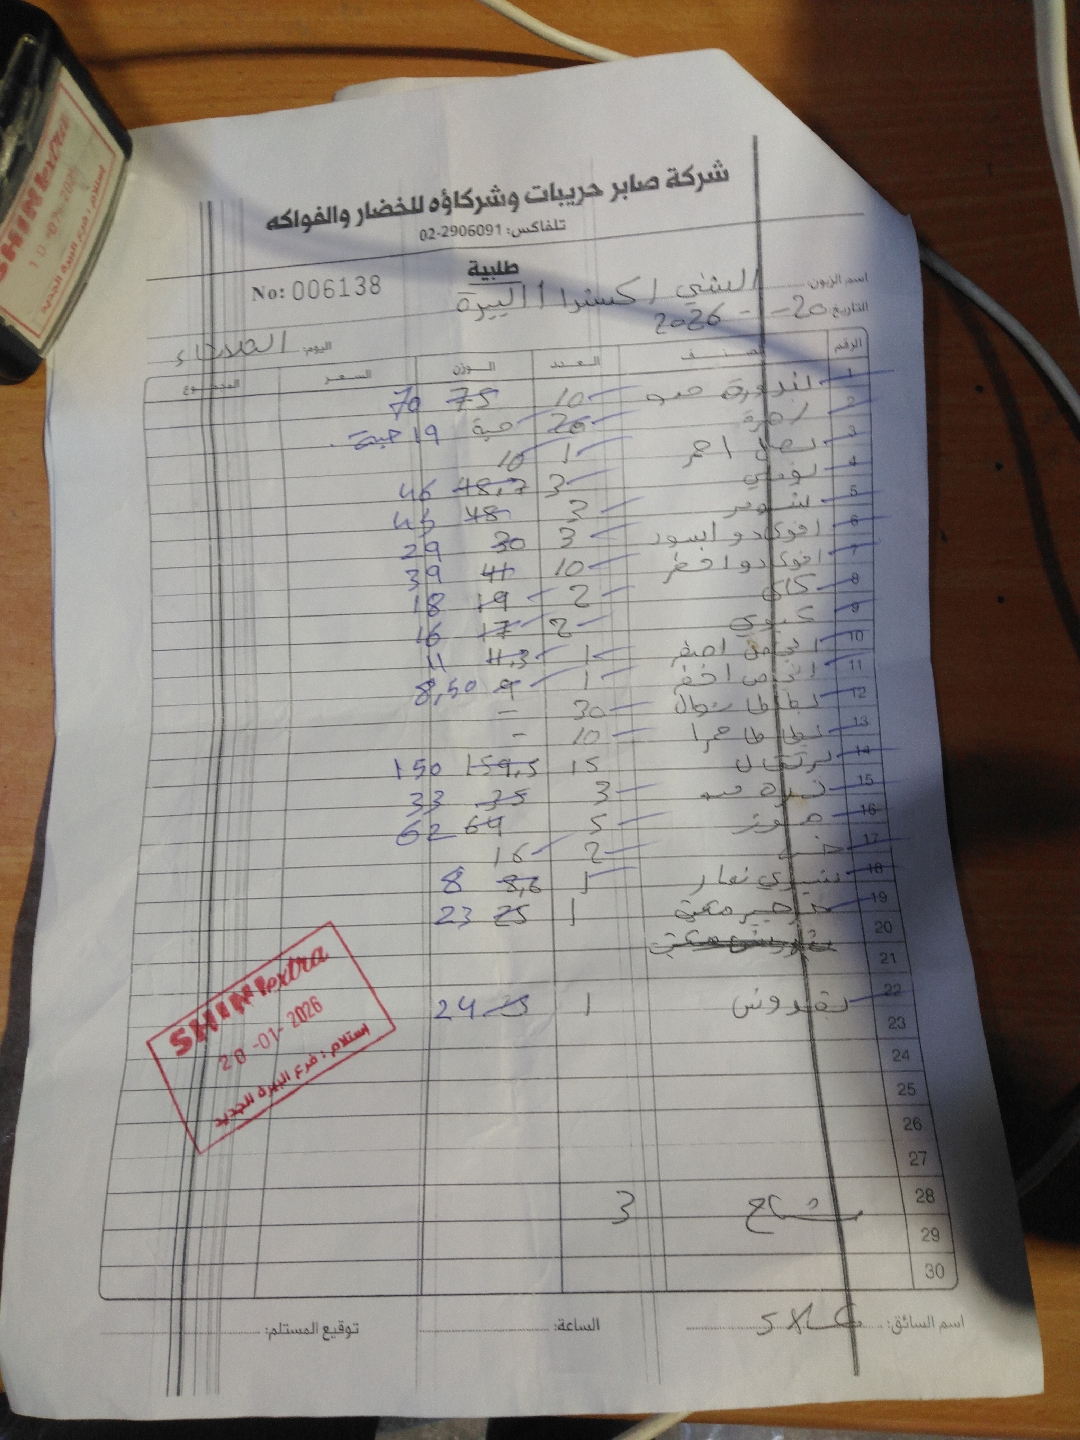 شركة صابر حريبات وشركاؤه للخضار والفواكه
تلفاكس: 02-2906091
طلبية
No: 006138
اسم الزبون: الشني اكسترا / البيرة
التاريخ: 20-1-2026
اليوم: الثلاثاء
الرقم الصنف العدد الوزن السعر المجموع
1 بندورة 10 75 70
2 زهرة 20 حبة 19 حبة
3 بصل احمر 1 10
4 3 48,7 46
5 شومر 3 48 45
6 افوكادو 3 30 29
7 افوكادو اخضر 10 41 39
8 كاكي 2 19 18
9 كيوي 2 17 16
10 انجاص اصفر 1 11
11 انجاص اخضر 1 9 8,50
12 بطاطا 30 -
13 بطاطا حمرا 10 -
14 برتقال 15 159,5 150
15 ذرة 3 35 33
16 موز 5 64 62
17 خس 2 16
18 شيري 1 8,6 8
19 مكتف 1 25 23
20
21
22 بقدونس 1 24
23
24
25
26
27
28 3
29
30
اسم السائق:
الساعة:
توقيع المستلم:
SHINI extra
20-01-2026
إستلام : فرع البيرة الجديد
SHINI extra
إستلام : فرع البيرة الجديد